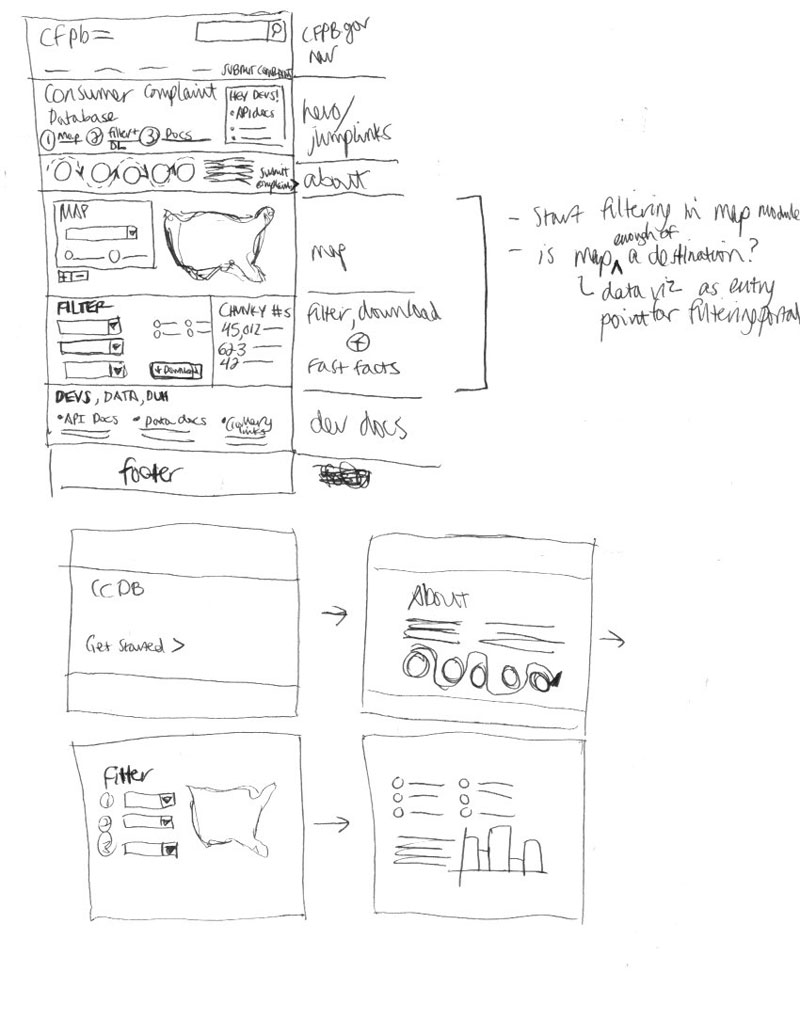 cfpb
CFPB gov
nav
SUBMIT COMPLAINT
Consumer Complaint
Database
① Map ② filter+ DL ③ Docs
HEY DEVS!
• API docs
hero/
jumplinks
submit
complaint >
about
MAP
map
FILTER
+ Download
CHUNKY #S
45,012
623
42
filter, download
+
Fast facts
DEVS, DATA, DUH
• API Docs • Data docs
dev docs
footer
- Start filtering in map module
- is map enough of a destination?
data viz as entry
point for filtering portal
CCDB
Get Started >
About
Filter
1
2
3